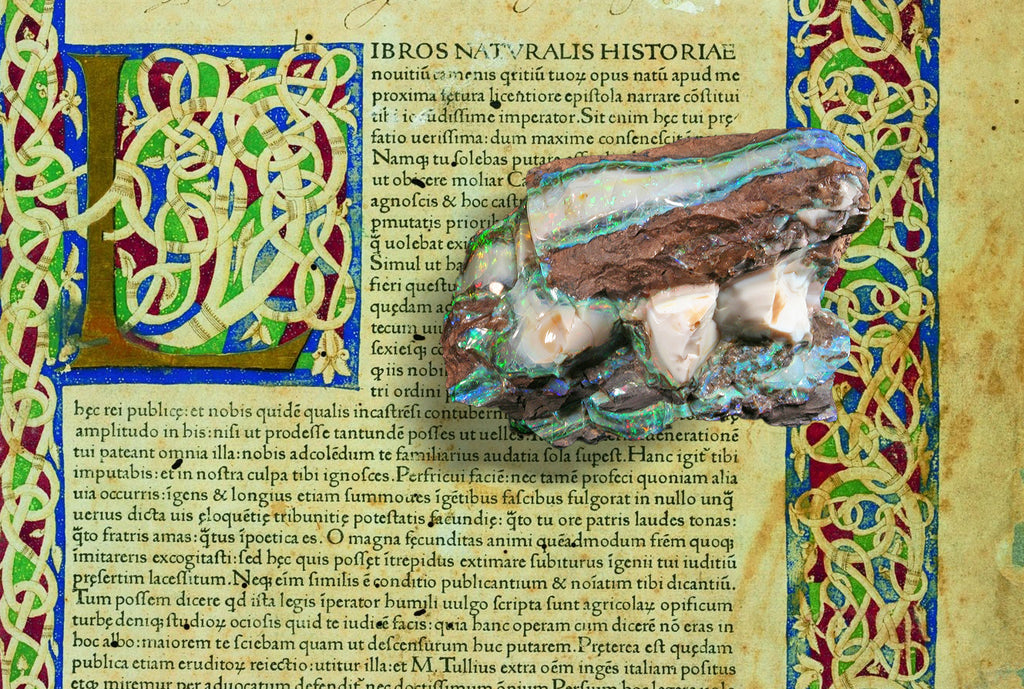 li
LIBROS NATVRALIS HISTORIAE
nouitiū camenis qritiū tuoꝝ opus natū apud me
proxima fętura licentiore epiſtola narrare cōſtitui
tibi iocūdiſſime imperator. Sit enim hęc tui pre-
fatio ueriſſima: dum maxime conſeneſcit
Namꝗ tu ſolebas putare
ut obicere moliar Ca
agnoſcis & hoc caſtr
pmutatis priorib
ꝗ̄ uolebat exi
Simul ut ha
fieri queſtu
quędam ac
tecum
ſexieſꝗ co
ꝗ iis nobi
tri ordini
hęc rei publicę: et nobis quidē qualis in caſtrēſi contubern
amplitudo in bis: niſi ut prodeſſe tantundē poſſes ut uelles
tui pateant omnia illa: nobis ad colēdum te familiarius audatia ſola ſupeſt. Hanc igit tibi
imputabis: et in noſtra culpa tibi ignoſces. Perfricui faciē: nec tamē profeci quoniam alia
uia occurris: īgens & longius etiam ſummoues īgētibus faſcibus fulgorat in nullo unꝗ̄
uerius dicta uis eloquētię tribunitię poteſtatis facundię: ꝗ̄to tu ore patris laudes tonas:
ꝗ̄to fratris amas: ꝗ̄tus ī poetica es. O magna fęcunditas animi quēadmodum frēm quoꝗ
īmitareris excogitaſti: ſed hęc quis poſſet ītrepidus extimare ſubiturus īgenii tui iuditiū
pręſertim laceſſitum. Neꝗ eīm ſimilis ē conditio publicantium & noīatim tibi dicantiū.
Tum poſſem dicere qd iſta legis īperator humili uulgo ſcripta ſunt agricolaꝝ opificum
turbę deniꝗ ſtudioꝝ ocioſis quid te iudicē facis: quia hanc operam cum dicerē nō eras in
hoc albo: maiorem te ſciebam quam ut deſcenſurum huc putarem. Pręterea eſt quędam
publica etiam eruditoꝝ reiectio: utitur illa: et M. Tullius extra oēm ingēs italiam poſitus
etꝗ miremur per aduocatum defendit nec doctiſſimum ōnium Perſium hoc legere